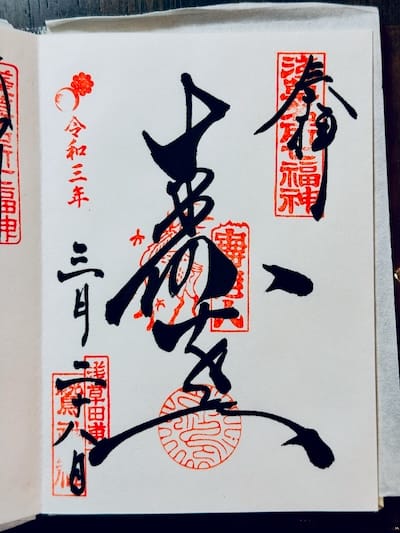 奉拝
浅草名所七福神
壽老人
壽老人
令和三年
三月二十八日
浅草田甫
鷲神社